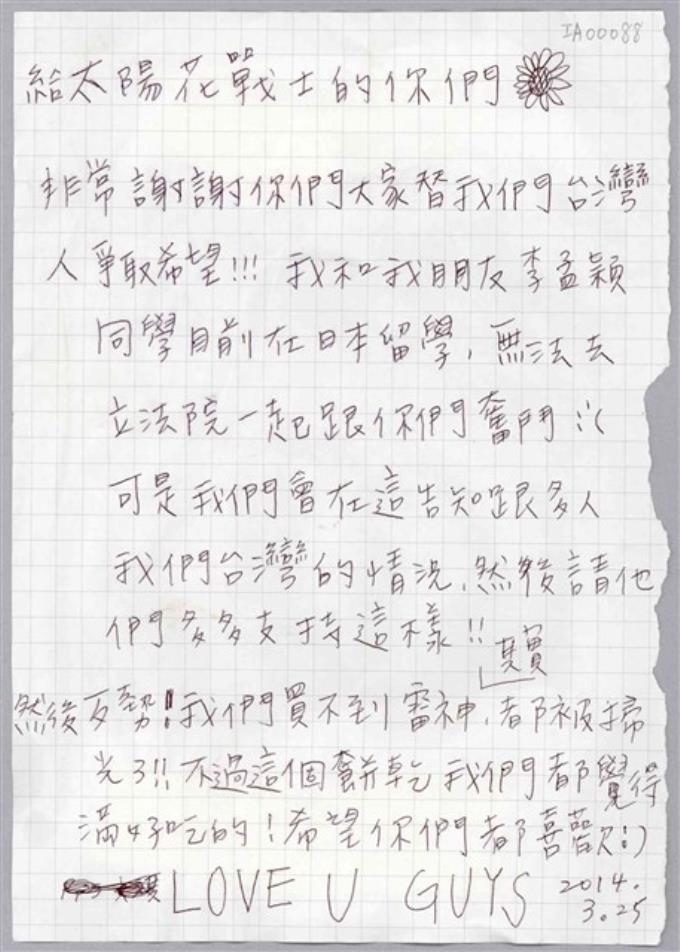 IA00088
給太陽花戰士的你們
非常謝謝你們大家替我們台灣
人爭取希望!!! 我和我朋友李孟穎
同學目前在日本留學,無法去
立法院一起跟你們奮鬥:'(
可是我們會在這告知跟多人
我們台灣的情況,然後請他
們多多支持這樣!!
其實
然後歹勢!我們買不到雷神,都被掃
光了!!不過這個餅乾我們都覺得
滿好吃的!希望你們都喜歡:)
LOVE U GUYS 2014.
3.25